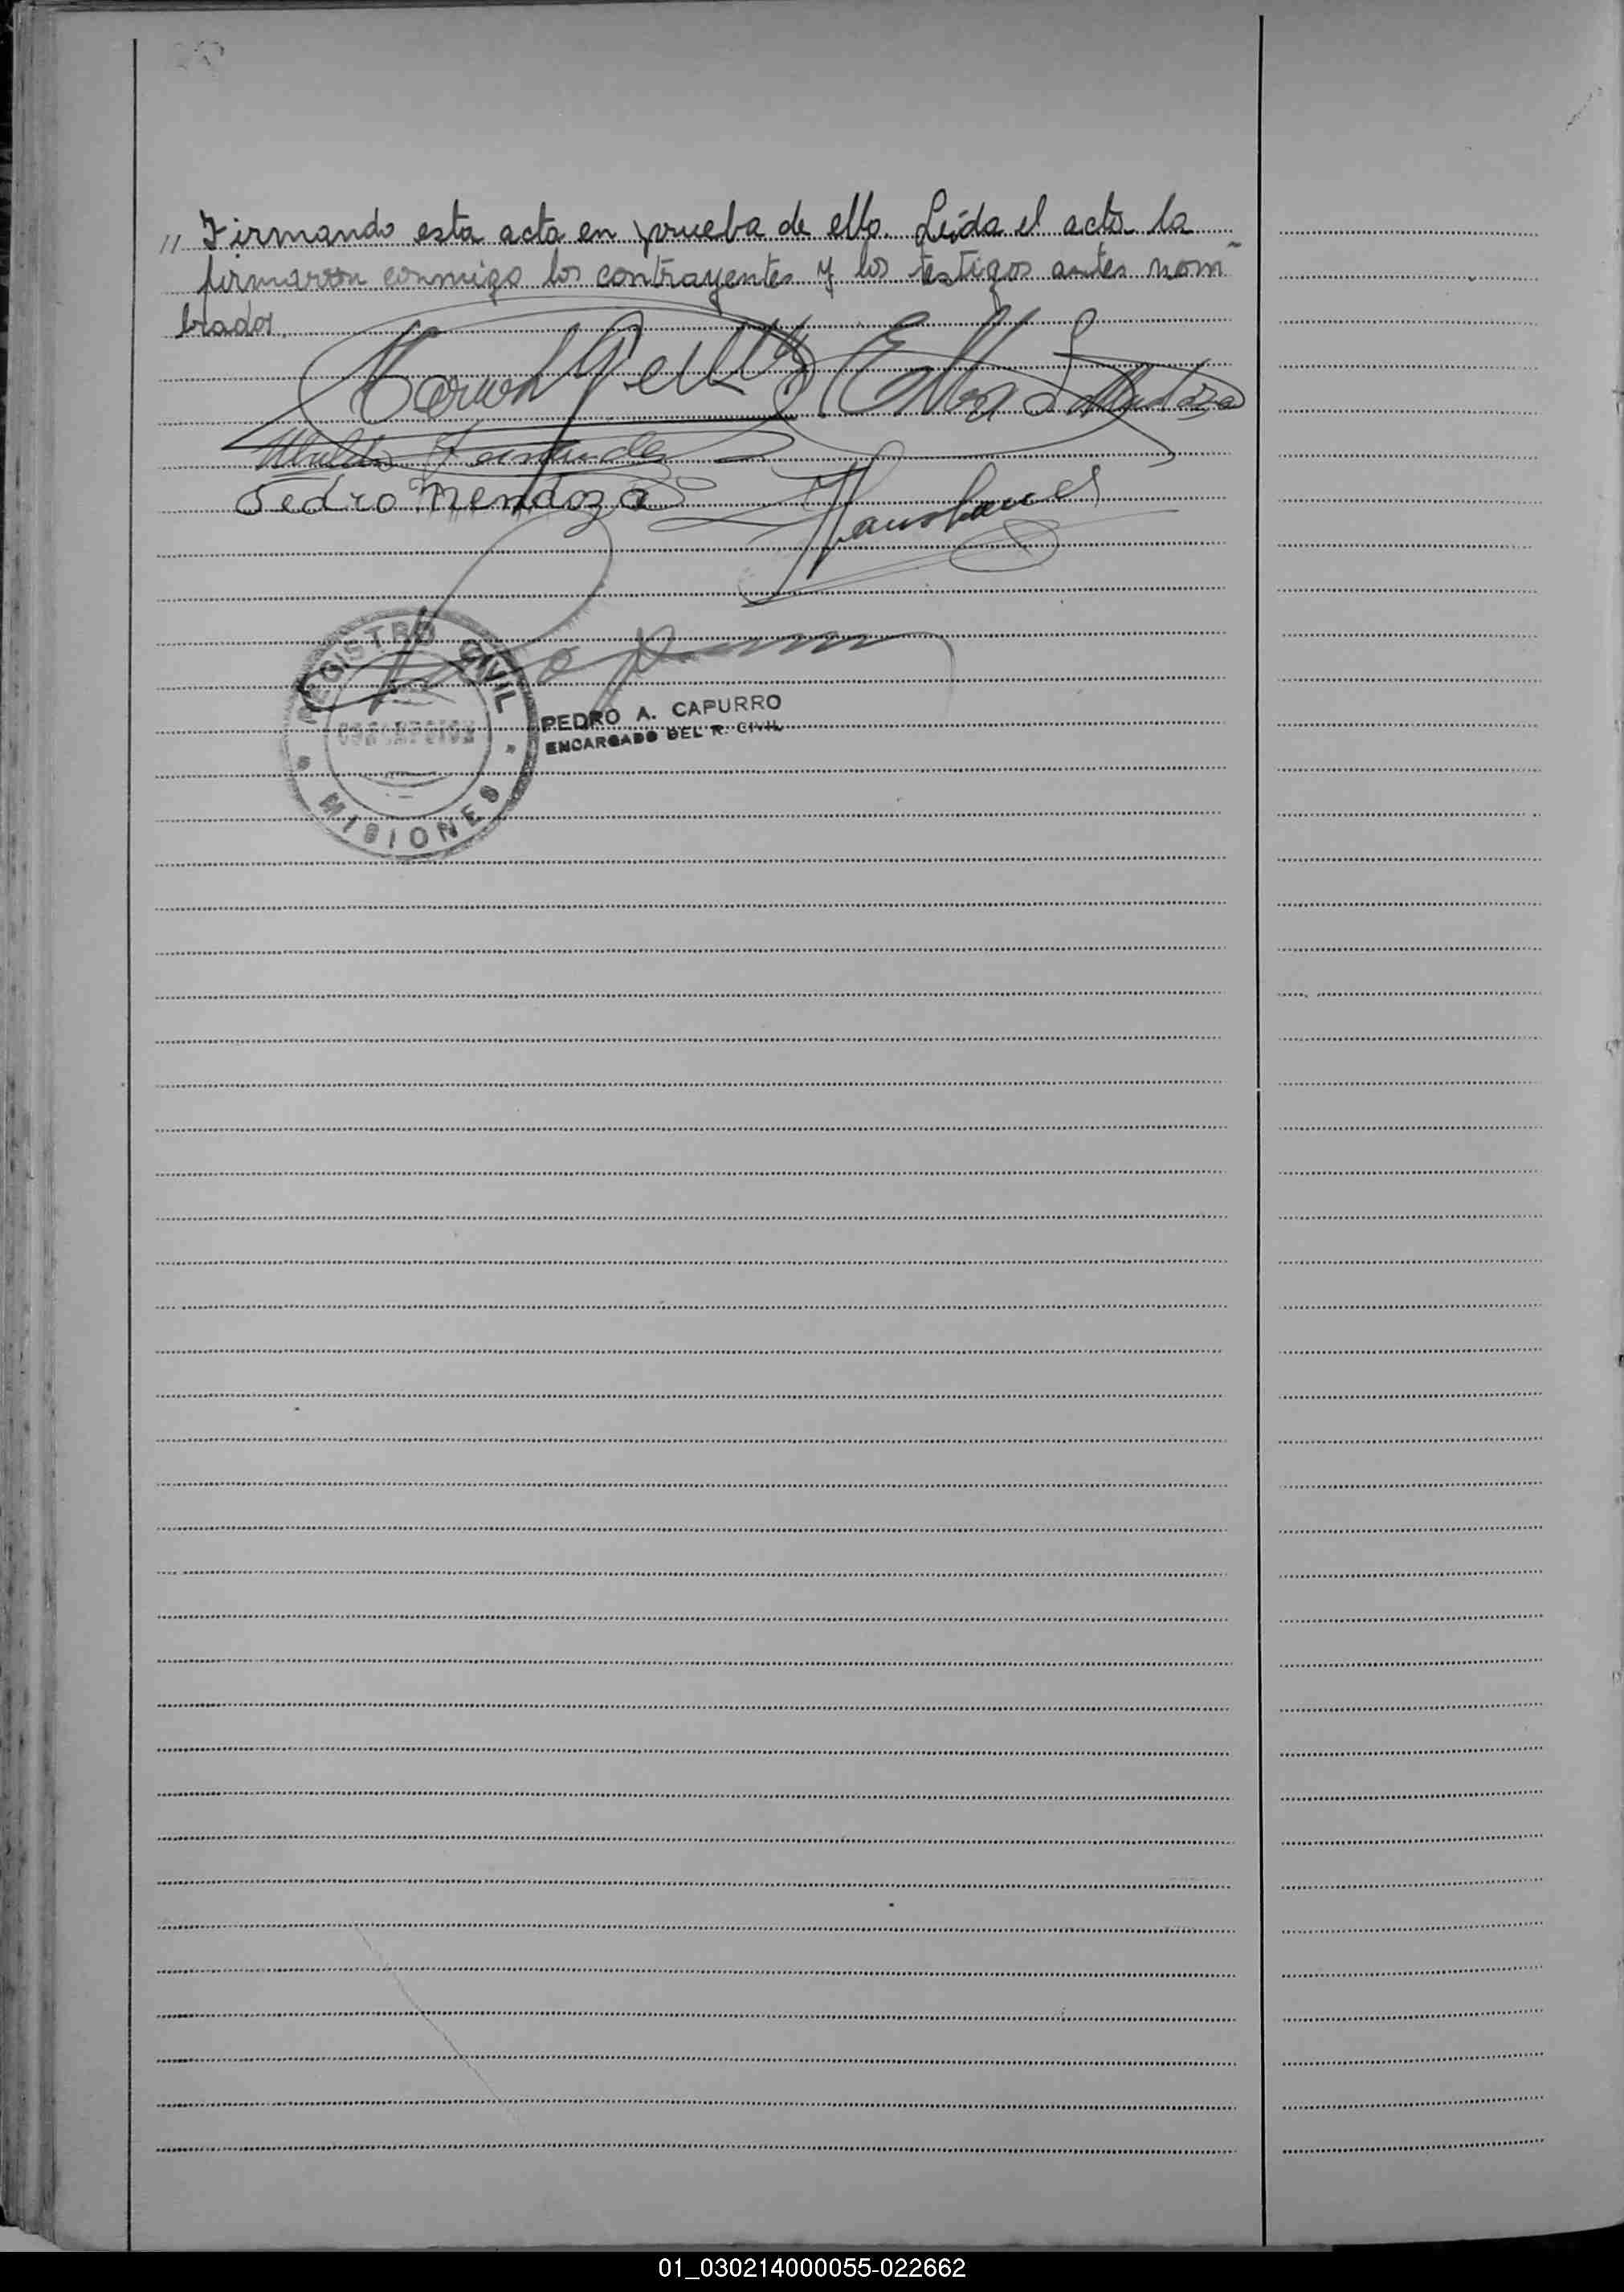 " Firmando esta acta en prueba de ello. Leída el acta la
firmaron conmigo los contrayentes y los testigos antes nom-
brados.
Elba S Mendoza
Pedro Mendoza
REGISTRO CIVIL
CONCEPCION
MISIONES
PEDRO A. CAPURRO
ENCARGADO DEL R. CIVIL
01_030214000055-022662